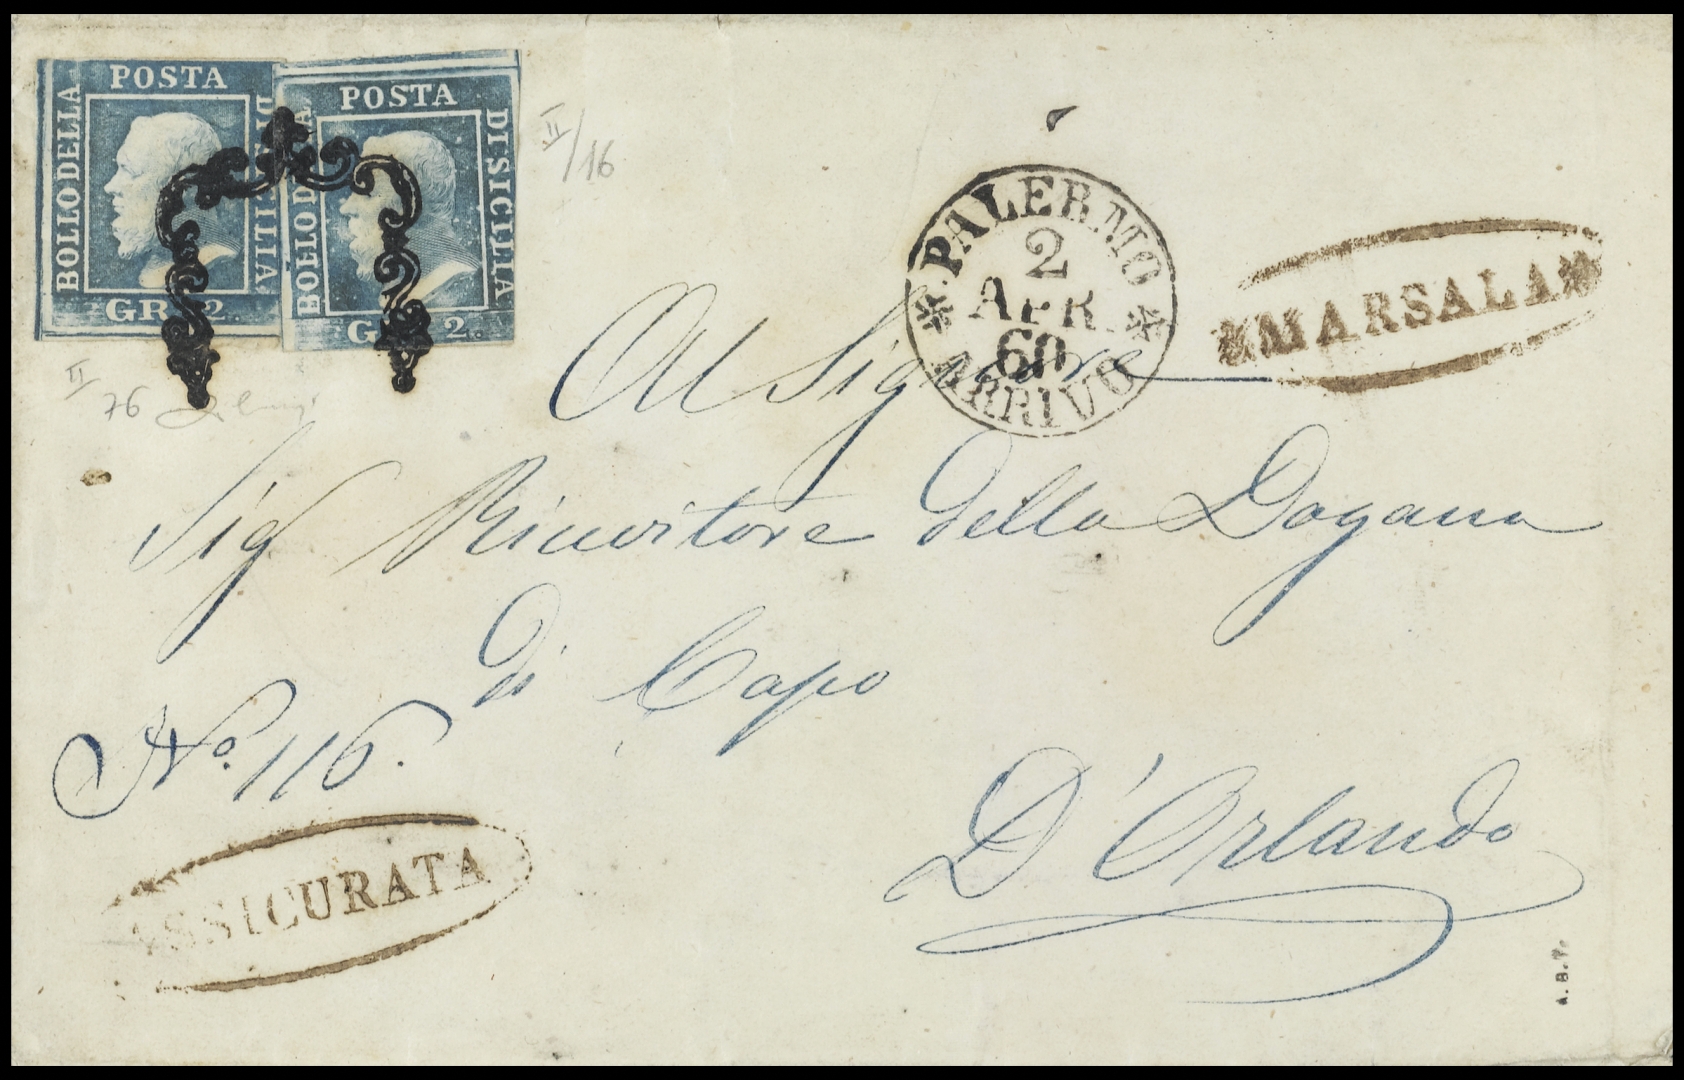 POSTA
BOLLO DELLA
DI SICILIA
GR. 2.
POSTA
BOLLO DELLA
DI SICILIA
GR. 2.
II/16
II/76
PALERMO
2
APR.
60
ARRIVO
MARSALA
Al Signore
Sig Ricevitore della Dogana
di Capo
D'Orlando
No. 116.
ASSICURATA
A. B. P.